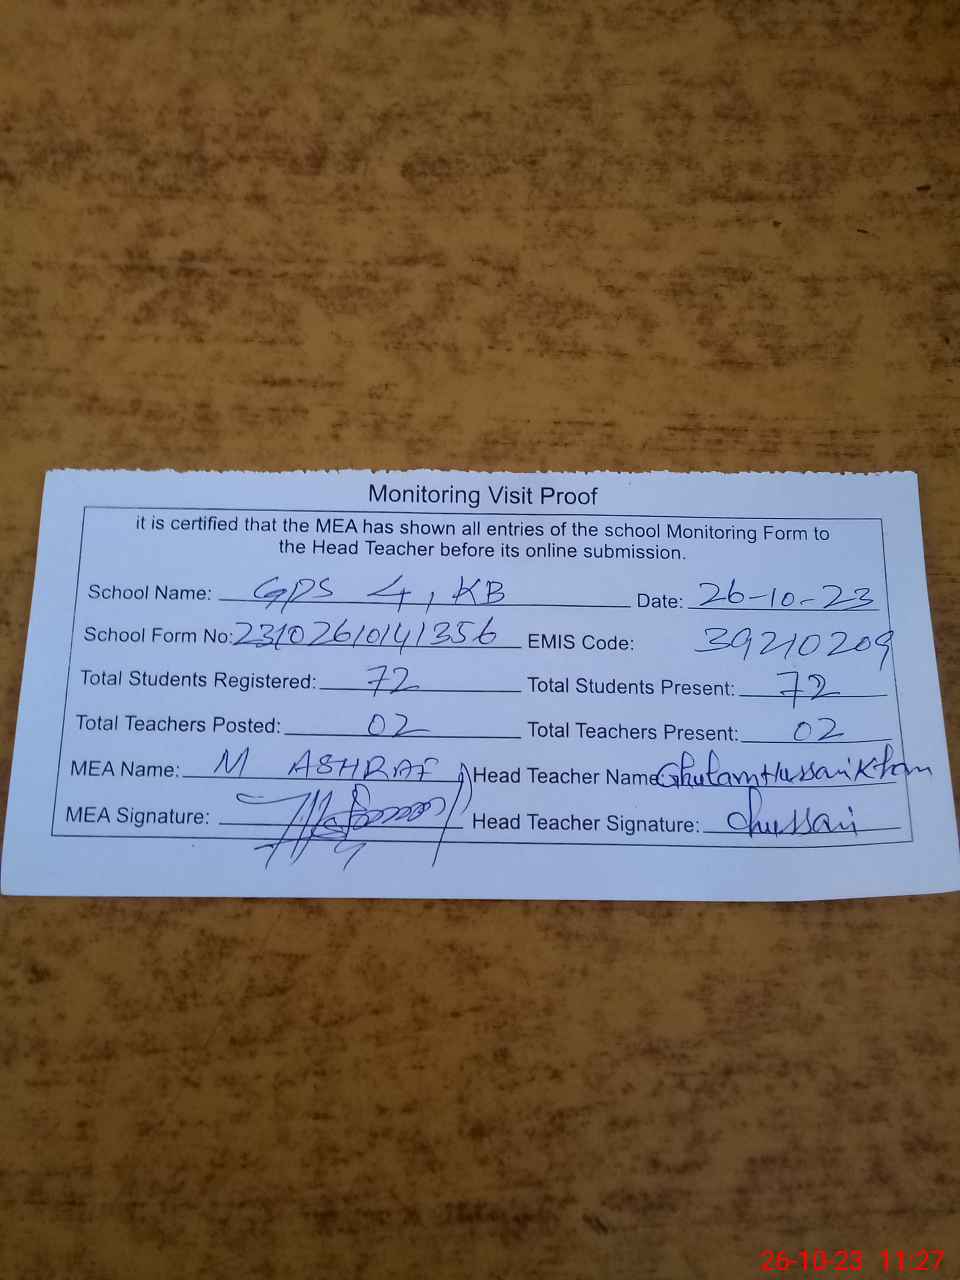 Monitoring Visit Proof
it is certified that the MEA has shown all entries of the school Monitoring Form to
the Head Teacher before its online submission.
School Name: GPS 4, KB Date: 26-10-23
School Form No: 23102610141356 EMIS Code: 39210209
Total Students Registered: 72 Total Students Present: 72
Total Teachers Posted: 02 Total Teachers Present: 02
MEA Name: M ASHRAF Head Teacher Name Ghulam Hussain Khan
MEA Signature: Head Teacher Signature: Ghussain
26-10-23 11:27